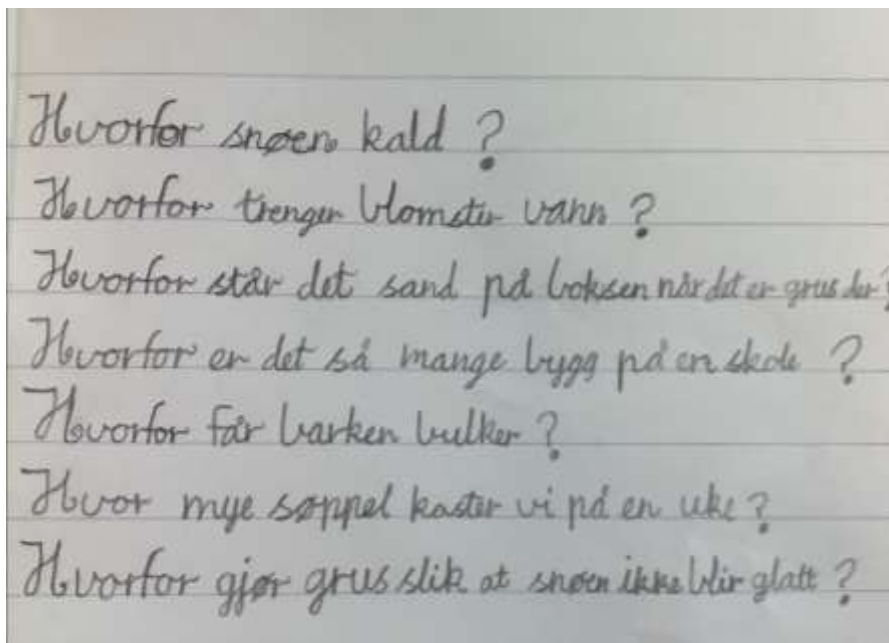 Hvorfor snøen kald ?
Hvorfor trenger blomster vann ?
Hvorfor står det sand på boksen når det er grus der?
Hvorfor er det så mange bygg på en skole ?
Hvorfor får barken bulker ?
Hvor mye søppel kaster vi på en uke ?
Hvorfor gjør grus slik at snøen ikke blir glatt ?